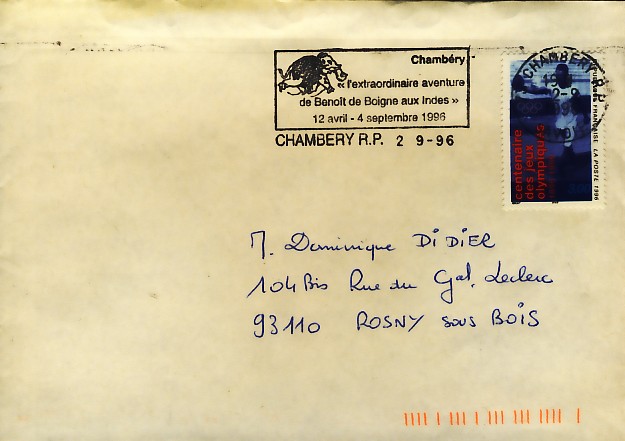 Chambéry
« l'extraordinaire aventure
de Benoît de Boigne aux Indes »
12 avril - 4 septembre 1996
CHAMBERY R.P. 2 9-96
CHAMBERY R.P.
centenaire
des jeux
olympiques
FRANÇAISE LA POSTE 1996
M. Dominique DIDIER
104 Bis Rue du Gal. Leclerc
93110 ROSNY sous BOIS